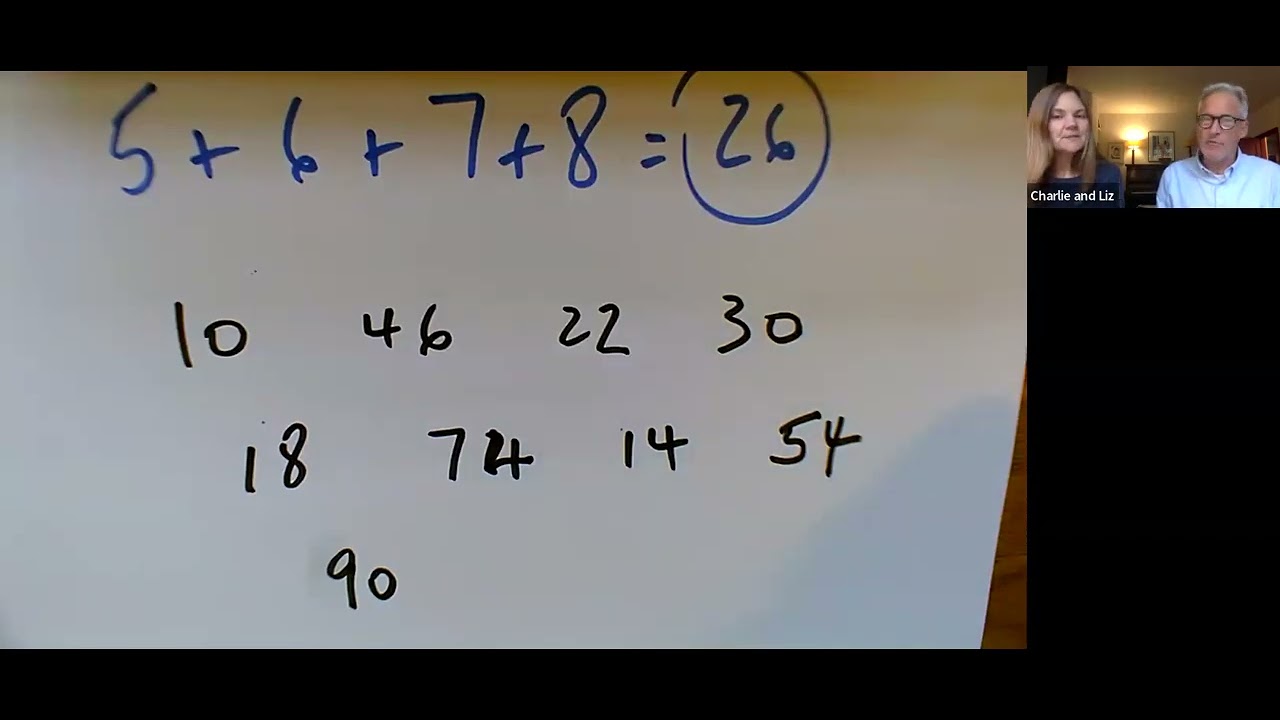 5 + 6 + 7 + 8 = 26
10 46 22 30
18 74 14 54
90
Charlie and Liz